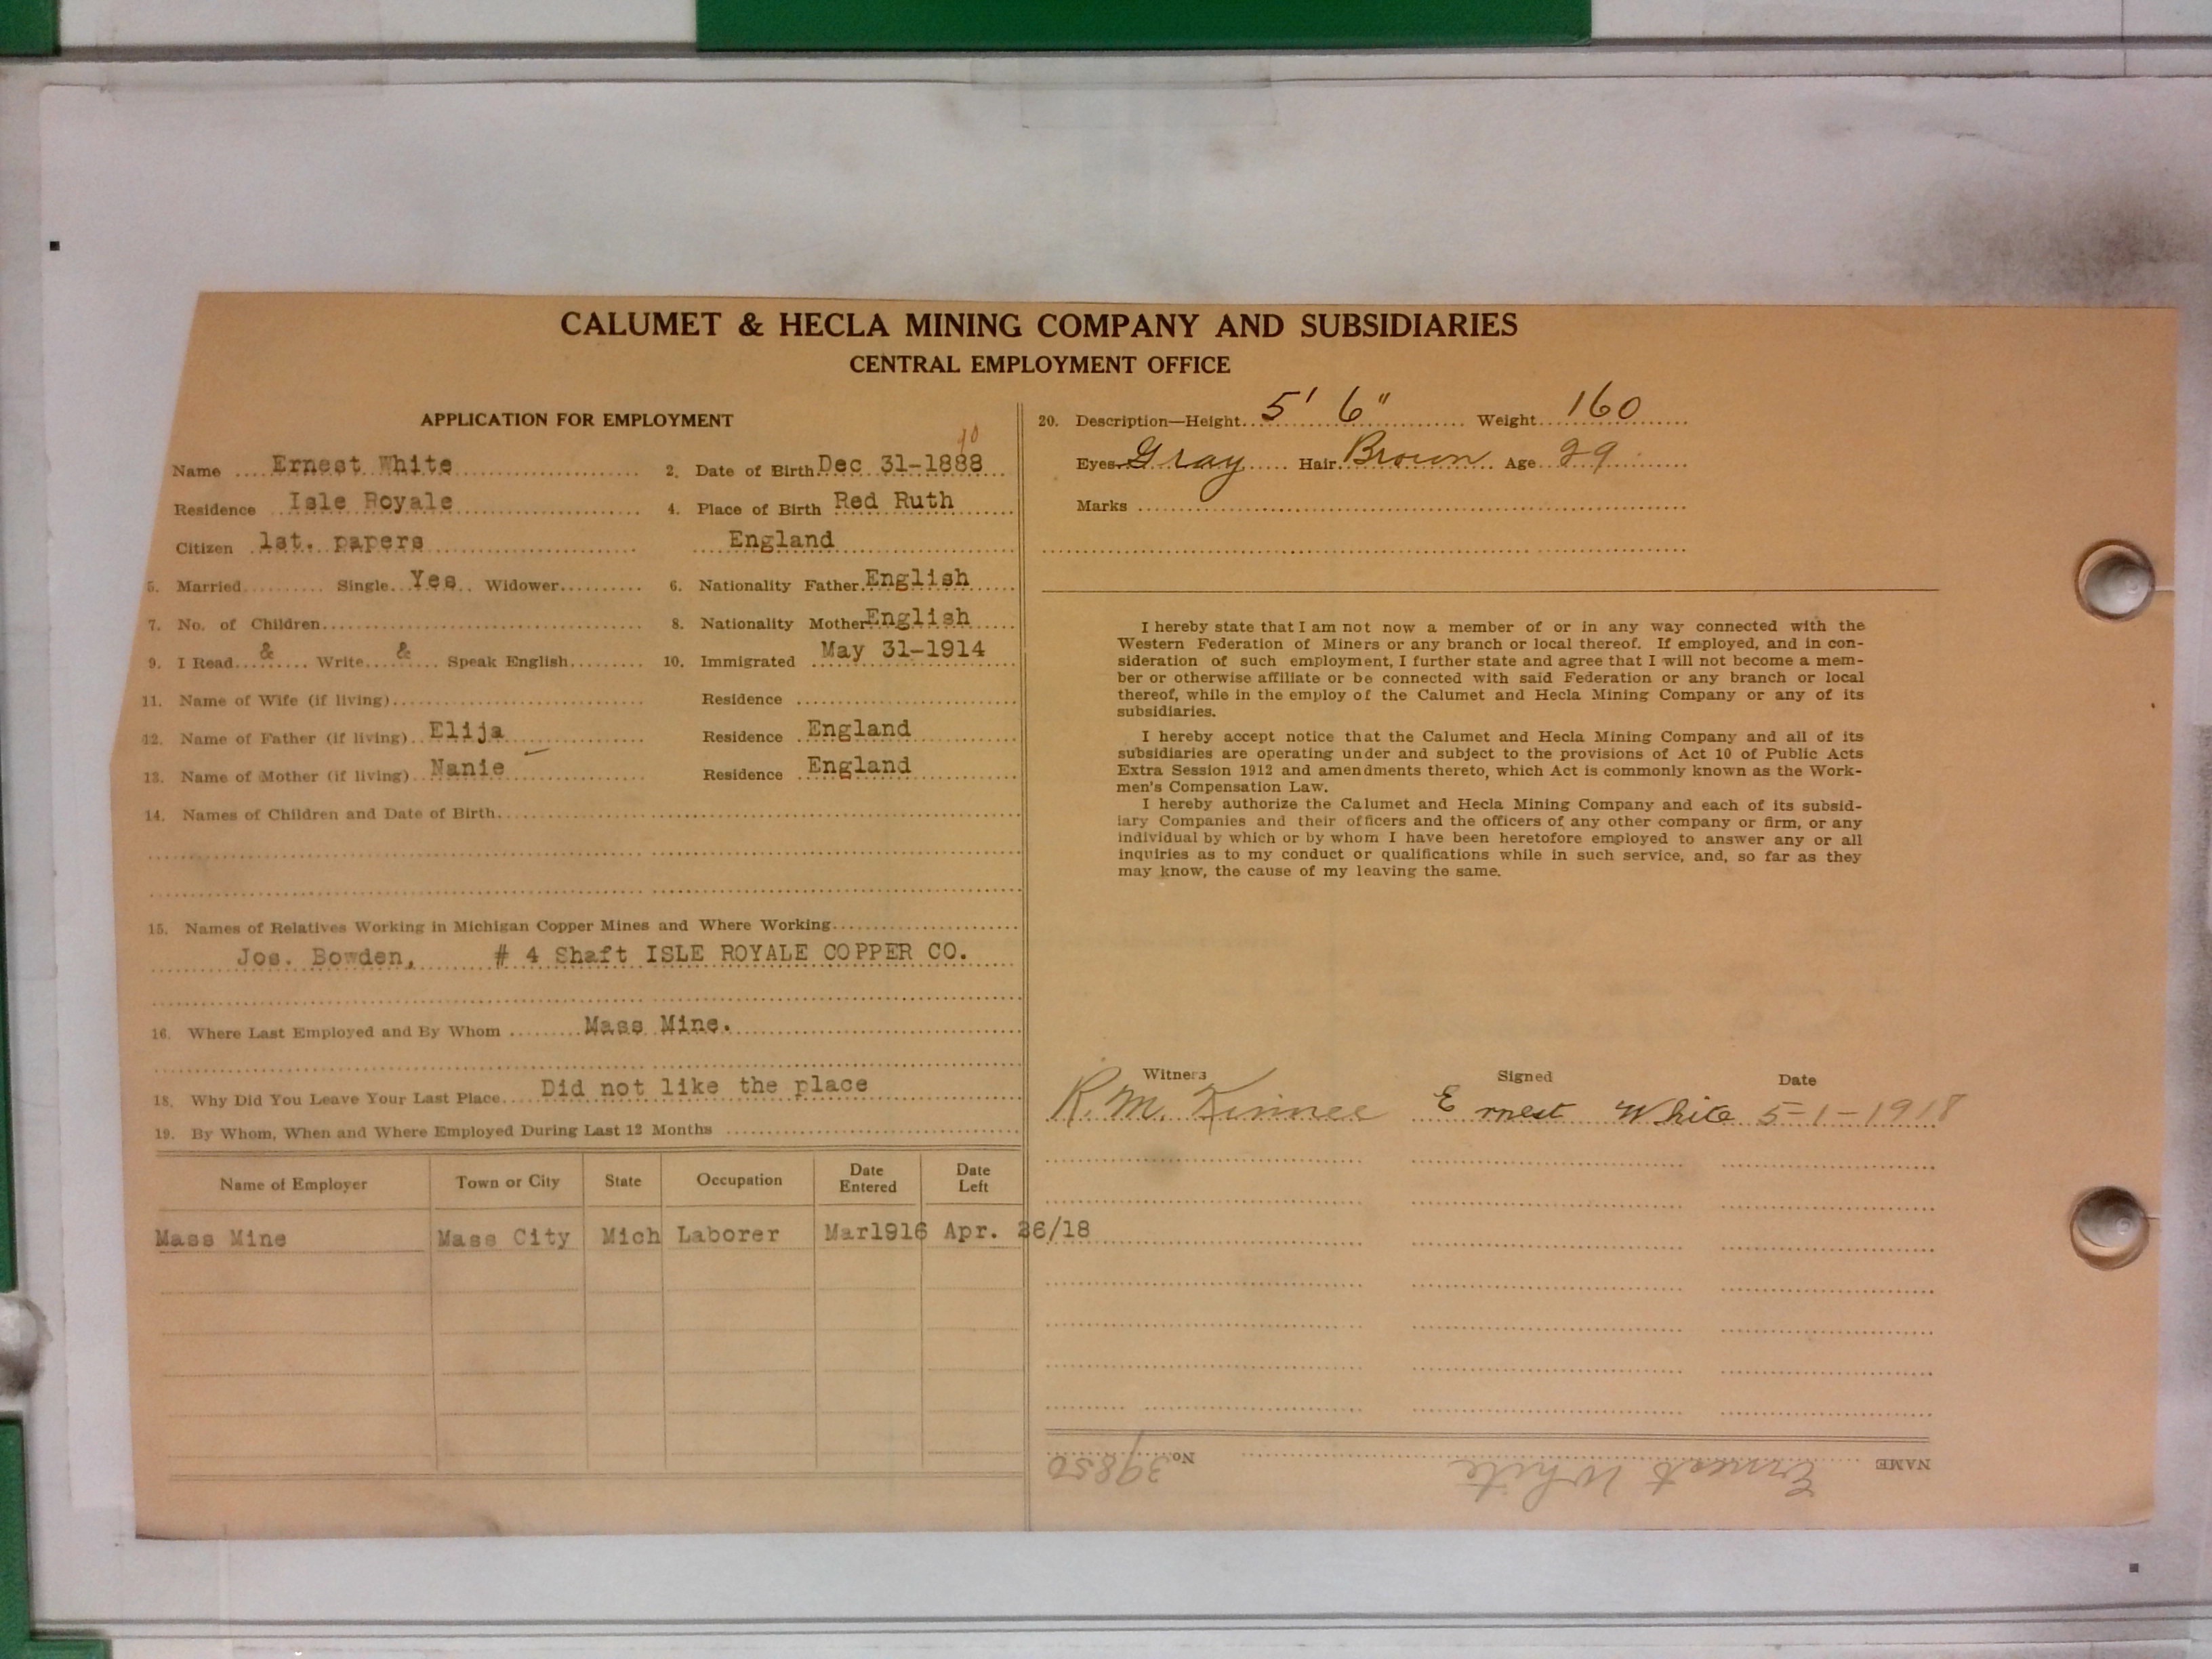 CALUMET & HECLA MINING COMPANY AND SUBSIDIARIES
CENTRAL EMPLOYMENT OFFICE
APPLICATION FOR EMPLOYMENT
Name Ernest White
Residence Isle Royale
Citizen 1st. papers
5. Married Single Yes Widower
7. No. of Children
9. I Read & Write & Speak English
11. Name of Wife (if living) Residence
12. Name of Father (if living) Elija Residence England
13. Name of Mother (if living) Nanie Residence England
10
2. Date of Birth Dec 31-1888
4. Place of Birth Red Ruth
England
6. Nationality Father English
8. Nationality Mother English
10. Immigrated May 31-1914
14. Names of Children and Date of Birth
15. Names of Relatives Working in Michigan Copper Mines and Where Working
Jos. Bowden, # 4 Shaft ISLE ROYALE COPPER CO.
16. Where Last Employed and By Whom Mass Mine.
18. Why Did You Leave Your Last Place Did not like the place
19. By Whom, When and Where Employed During Last 12 Months
Name of Employer Town or City State Occupation Date Entered Date Left
Mass Mine Mass City Mich Laborer Mar1916 Apr. 26/18
20. Description—Height 5' 6" Weight 160
Eyes Gray Hair Brown Age 29
Marks
I hereby state that I am not now a member of or in any way connected with the
Western Federation of Miners or any branch or local thereof. If employed, and in con-
sideration of such employment, I further state and agree that I will not become a mem-
ber or otherwise affiliate or be connected with said Federation or any branch or local
thereof, while in the employ of the Calumet and Hecla Mining Company or any of its
subsidiaries.
I hereby accept notice that the Calumet and Hecla Mining Company and all of its
subsidiaries are operating under and subject to the provisions of Act 10 of Public Acts
Extra Session 1912 and amendments thereto, which Act is commonly known as the Work-
men's Compensation Law.
I hereby authorize the Calumet and Hecla Mining Company and each of its subsid-
iary Companies and their officers and the officers of any other company or firm, or any
individual by which or by whom I have been heretofore employed to answer any or all
inquiries as to my conduct or qualifications while in such service, and, so far as they
may know, the cause of my leaving the same.
Witness Signed Date
R. M. Kinnee Ernest White 5-1-1918
NAME Ernest White No. 39850